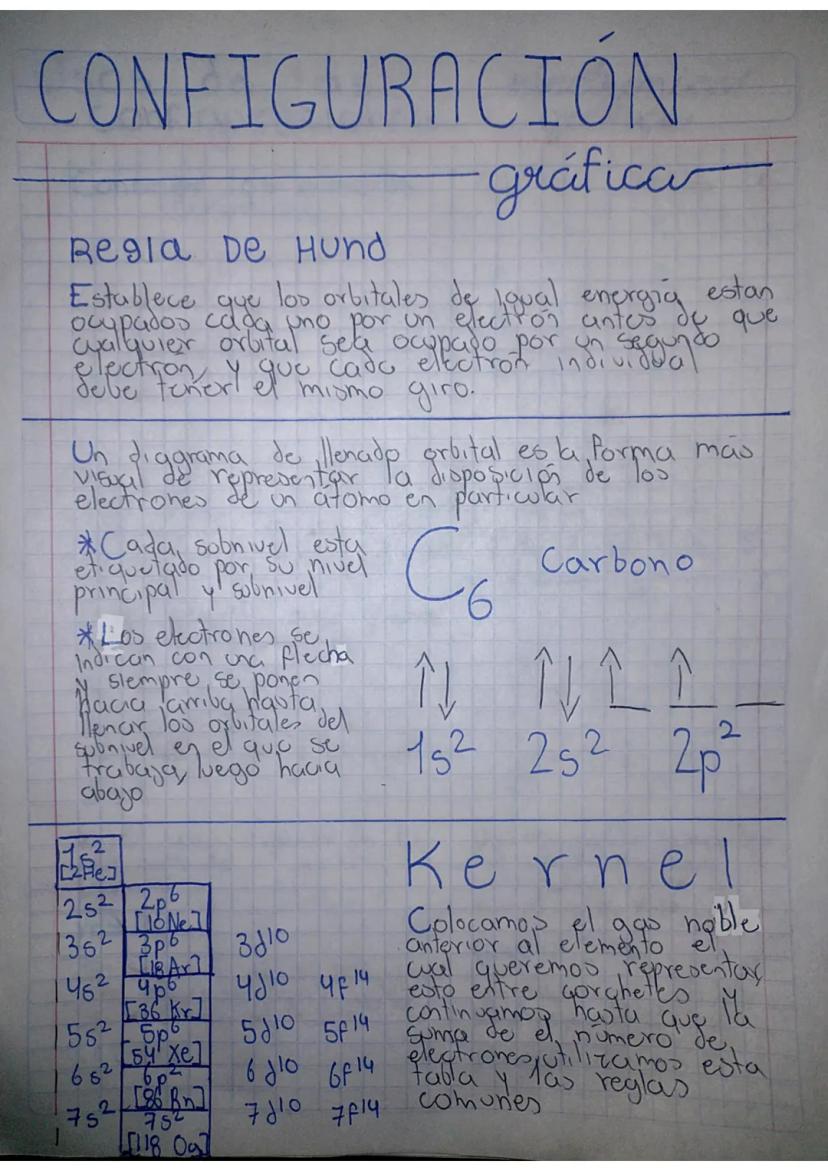 CONFIGURACIÓN
gráfica
Regla De Hund
Establece que los orbitales de igual energía estan
ocupados cada uno por un electrón antes de que
cualquier orbital sea ocupado por un segundo
electron, y que cada electrón individual
debe tener el mismo giro.
Un diagrama de llenado orbital es la forma más
visual de representar la disposición de los
electrones de un átomo en particular
*Cada sobnivel esta
etiquetado por su nivel
principal y sobnivel
*Los electrones se
indican con una flecha
y siempre se ponen
hacia arriba hasta
llenar los orbitales del
sobnivel en el que se
trabaja, luego hacia
abajo
C6 Carbono
↑↓ ↑↓ ↑ ↑
1s² 2s² 2p²
1s²
[2He]
2s² 2p⁶
[10Ne]
3s² 3p⁶ 3d10
[18Ar]
4s² 4p⁶ 4d10 4f14
[36 Kr]
5s² 5p⁶ 5d10 5f14
[54 Xe]
6s² 6p² 6d10 6f14
[86 Rn]
7s² 7s² 7d10 7f14
[118 Og]
Kernel
Colocamos el gas noble
anterior al elemento el
cual queremos representar,
esto entre corchetes y
continuamos hasta que la
suma de el número de
electrones, utilizamos esta
tabla y las reglas
comunes